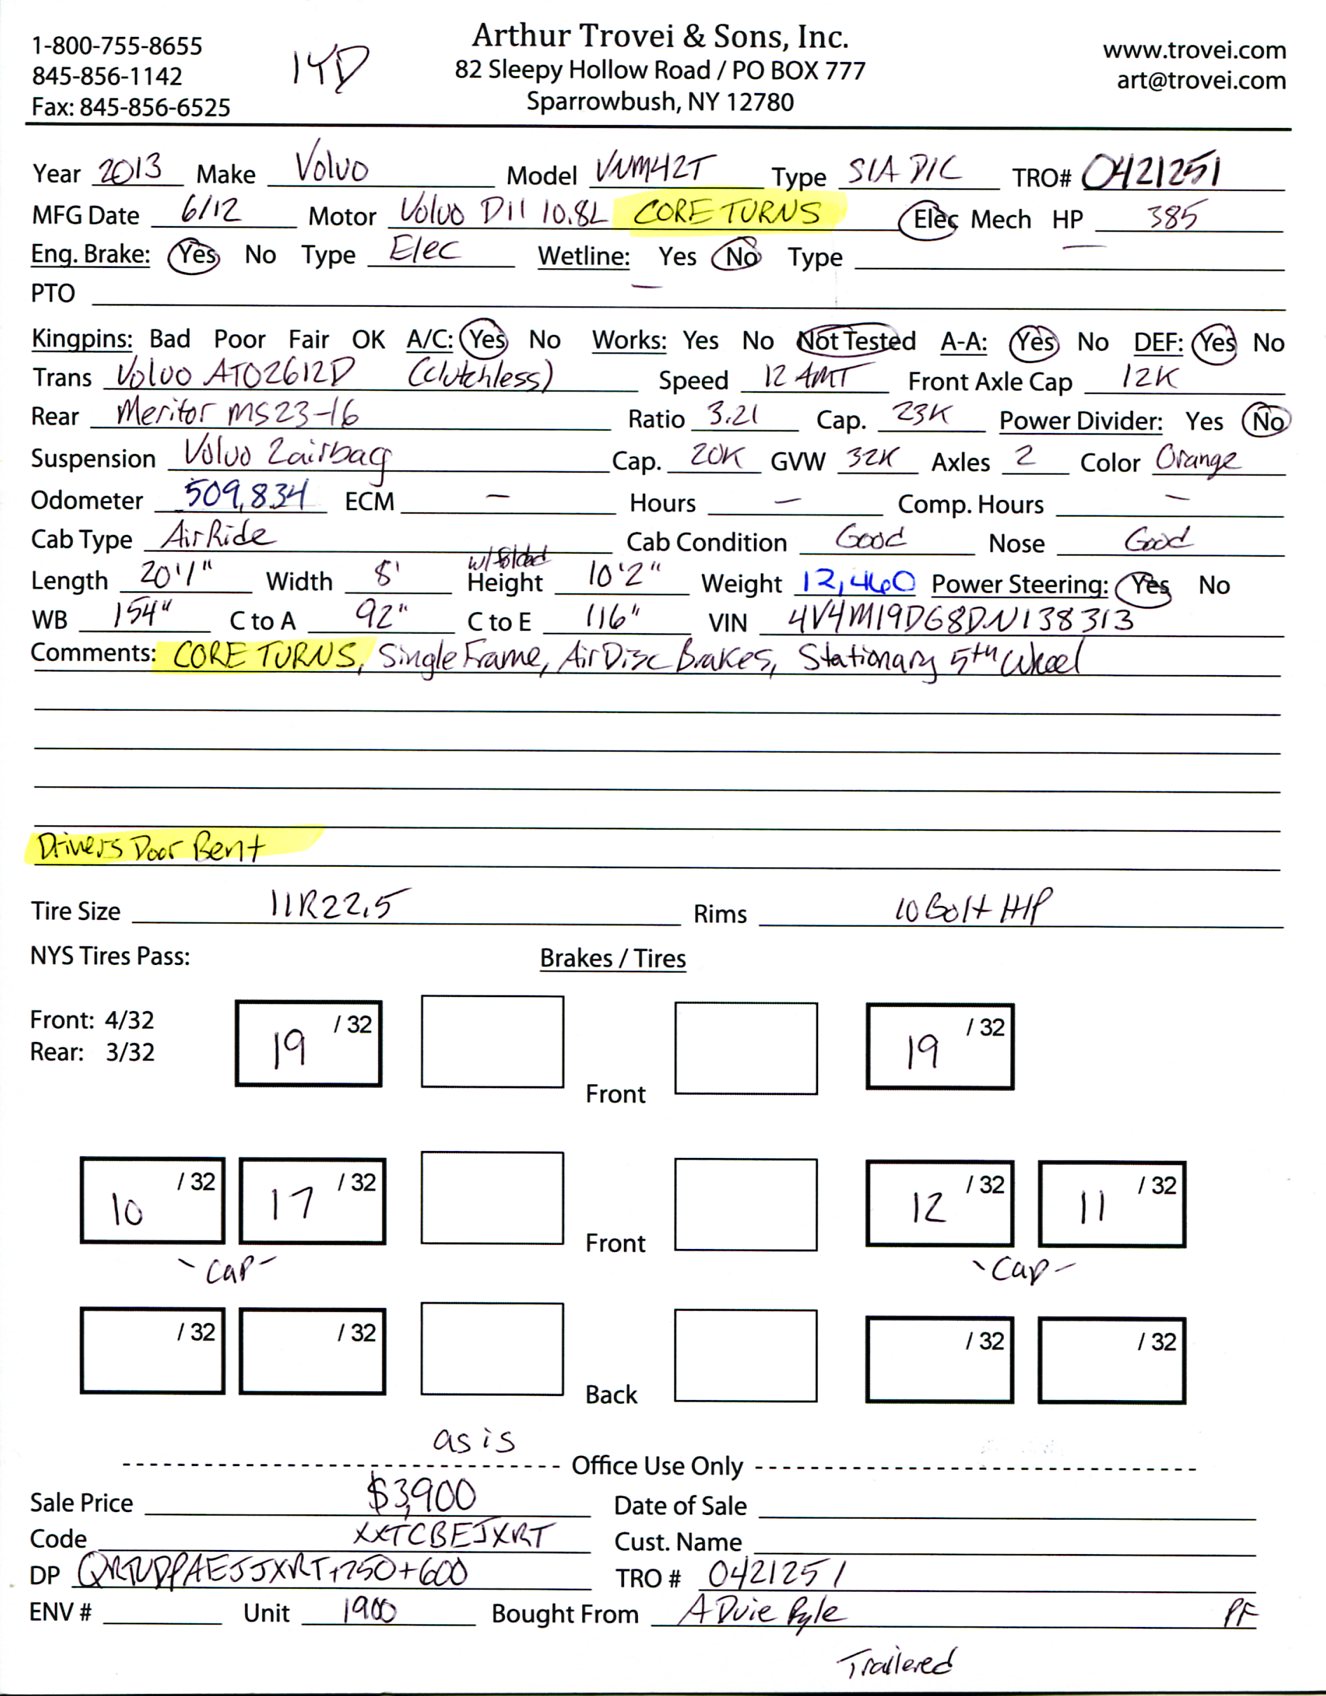 Arthur Trovei & Sons, Inc.
1-800-755-8655 1YD 82 Sleepy Hollow Road / PO BOX 777 www.trovei.com
845-856-1142 Sparrowbush, NY 12780 art@trovei.com
Fax: 845-856-6525
Year 2013 Make Volvo Model VNM42T Type S/A D/C TRO# 0421251
MFG Date 6/12 Motor Volvo D11 10.8L CORE TURNS Elec Mech HP 385
Eng. Brake: Yes No Type Elec Wetline: Yes No Type
PTO
Kingpins: Bad Poor Fair OK A/C: Yes No Works: Yes No Not Tested A-A: Yes No DEF: Yes No
Trans Volvo ATO2612D (Clutchless) Speed 12 AMT Front Axle Cap 12K
Rear Meritor MS23-16 Ratio 3.21 Cap. 23K Power Divider: Yes No
Suspension Volvo 2airbag Cap. 20K GVW 32K Axles 2 Color Orange
Odometer 509,834 ECM – Hours – Comp. Hours –
Cab Type AirRide Cab Condition Good Nose Good
w/folded
Length 20'1" Width 8' Height 10'2" Weight 12,460 Power Steering: Yes No
WB 154" C to A 92" C to E 116" VIN 4V4M19DG8DN138313
Comments: CORE TURNS, Single Frame, Air Disc Brakes, Stationary 5th Wheel
Drivers Door Bent
Tire Size 11R22.5 Rims 10 Bolt HP
NYS Tires Pass: Brakes / Tires
Front: 4/32 19 /32 19 /32
Rear: 3/32
Front
10 /32 17 /32 12 /32 11 /32
Front
-Cap- -Cap-
/32 /32 /32 /32
Back
as is
Office Use Only
Sale Price $3,900 Date of Sale
Code XXTCBEJXRT Cust. Name
DP +750+600 TRO # 0421251
ENV # Unit 1900 Bought From A Duie Pyle PF
Trailered